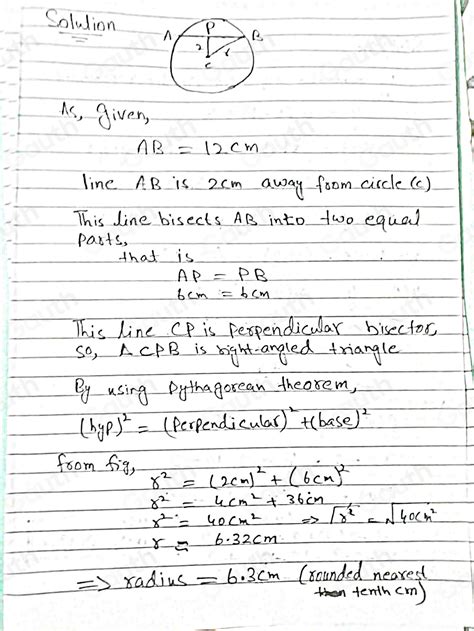 Solution
A P B
2 r
c
As, given,
AB = 12cm
line AB is 2cm away from circle (c)
This line bisects AB into two equal
parts,
that is
AP = PB
6cm = 6cm
This line CP is perpendicular bisector,
so, △CPB is right-angled triangle
By using pythagorean theorem,
(hyp)² = (perpendicular)² + (base)²
from fig,
r² = (2cm)² + (6cm)²
r² = 4cm² + 36cm
r² = 40cm² ⇒ √r² = √40cm²
r = 6.32cm
⇒ radius = 6.3cm (rounded nearest
tenth cm)